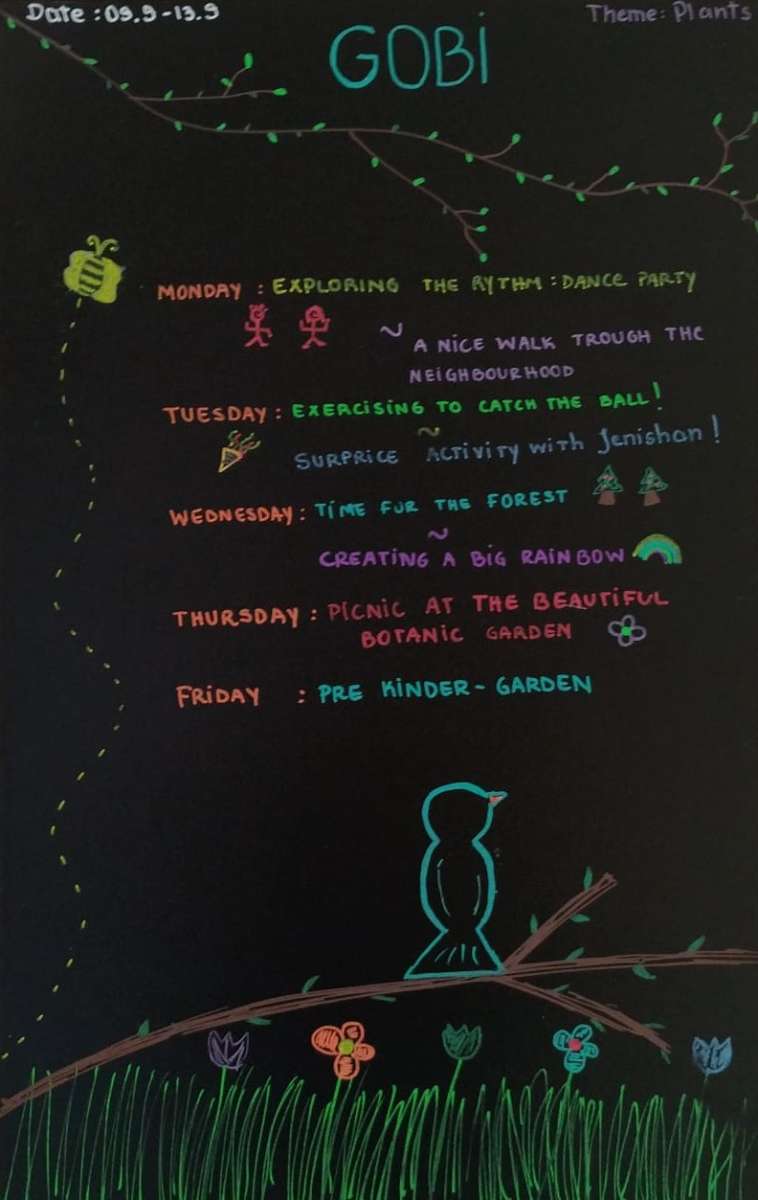 Date : 09.9-13.9
Theme: Plants
GOBi
MONDAY : EXPLORING THE RYTHM : DANCE PARTY
~ A NiCE WALK TROUGH THE
NEiGHBOURHOOD
TUESDAY : EXERCiSiNG TO CATCH THE BALL !
~
SURPRiCE ACTiViTY WiTH Jenishan !
WEDNESDAY : TiME FUR THE FOREST
~
CREATiNG A BiG RAiNBOW
THURSDAY : PiCNiC AT THE BEAUTiFUL
BOTANiC GARDEN
FRiDAY : PRE KiNDER - GARDEN